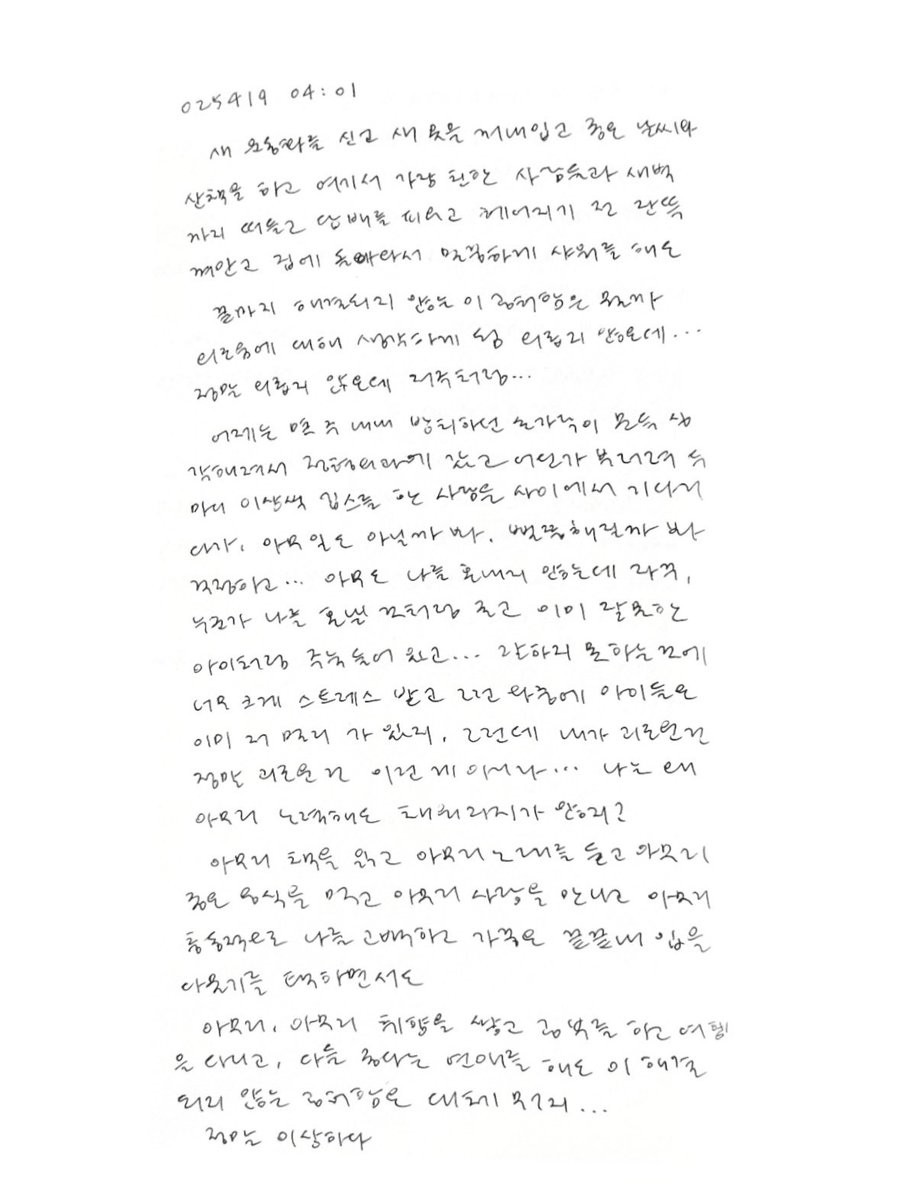 025419 04:01
새 운동화를 신고 새 옷을 꺼내입고 좋은 날씨와
산책을 하고 여기서 가장 친한 사람들과 새벽
까지 떠들고 담배를 피우고 헤어지기 전 잔뜩
껴안고 집에 돌아와서 말끔하게 샤워를 해도
끝까지 해결되지 않는 이 공허함은 뭘까
외로움에 대해 생각하게 됨 외롭지 않은데...
정말 외롭지 않은데 저주처럼...
어제는 몇 주 내내 방치하던 손가락이 문득 심
각해져서 정형외과에 갔고 어딘가 부러져 두
마디 이상씩 깁스를 한 사람들 사이에서 기다리
다가, 아무일도 아닐까 봐, 뻘쭘해질까 봐
걱정하고... 아무도 나를 혼내지 않는데 자꾸,
누군가 나를 혼낼 것처럼 굴고 이미 잘못한
아이처럼 주눅 들어 있고... 잘하지 못하는 것에
너무 크게 스트레스 받고 그런 와중에 아이들은
이미 저 멀리 가 있지, 그런데 내가 괴로운 건
정말 괴로운 건 이런 게 아니라... 나는 왜
아무리 노력해도 채워지지가 않지?
아무리 책을 읽고 아무리 노래를 듣고 아무리
좋은 음식을 먹고 아무리 사람을 만나고 아무리
충동적으로 나를 고백하고 가끔은 끝끝내 입을
다물기를 택하면서도
아무리, 아무리 취향을 쌓고 공부를 하고 여행
을 다니고, 다들 좋다는 연애를 해도 이 해결
되지 않는 공허함은 대체 뭐지...
정말 이상하다